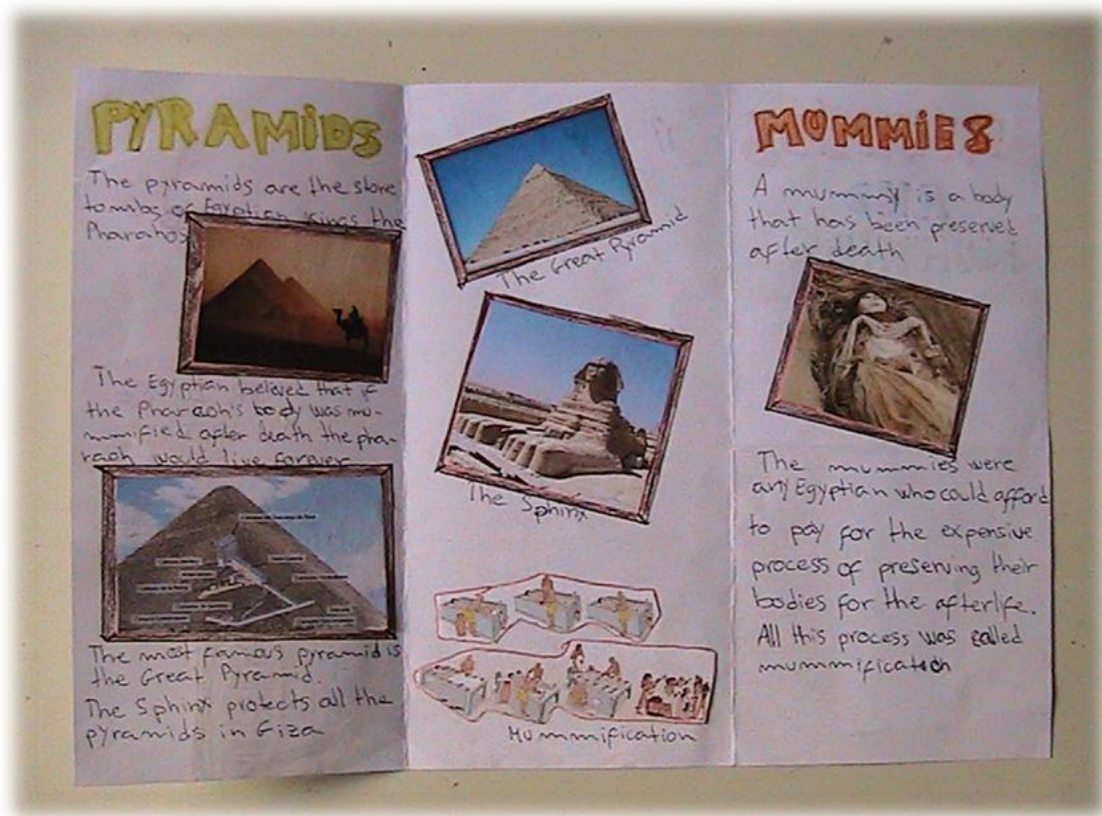 PYRAMIDS
The pyramids are the stone
tombs of Egyptian kings the
Pharahos
The Egyptian belived that if
the Pharaoh's body was mu-
mmified after death the pha-
raoh would live forever
The most famous pyramid is
the Great Pyramid.
The Sphinx protects all the
pyramids in Giza
The Great Pyramid
The Sphinx
Mummification
MUMMIES
A mummy is a body
that has been preserved
after death
The mummies were
any Egyptian who could afford
to pay for the expensive
process of preserving their
bodies for the afterlife.
All this process was called
mummification